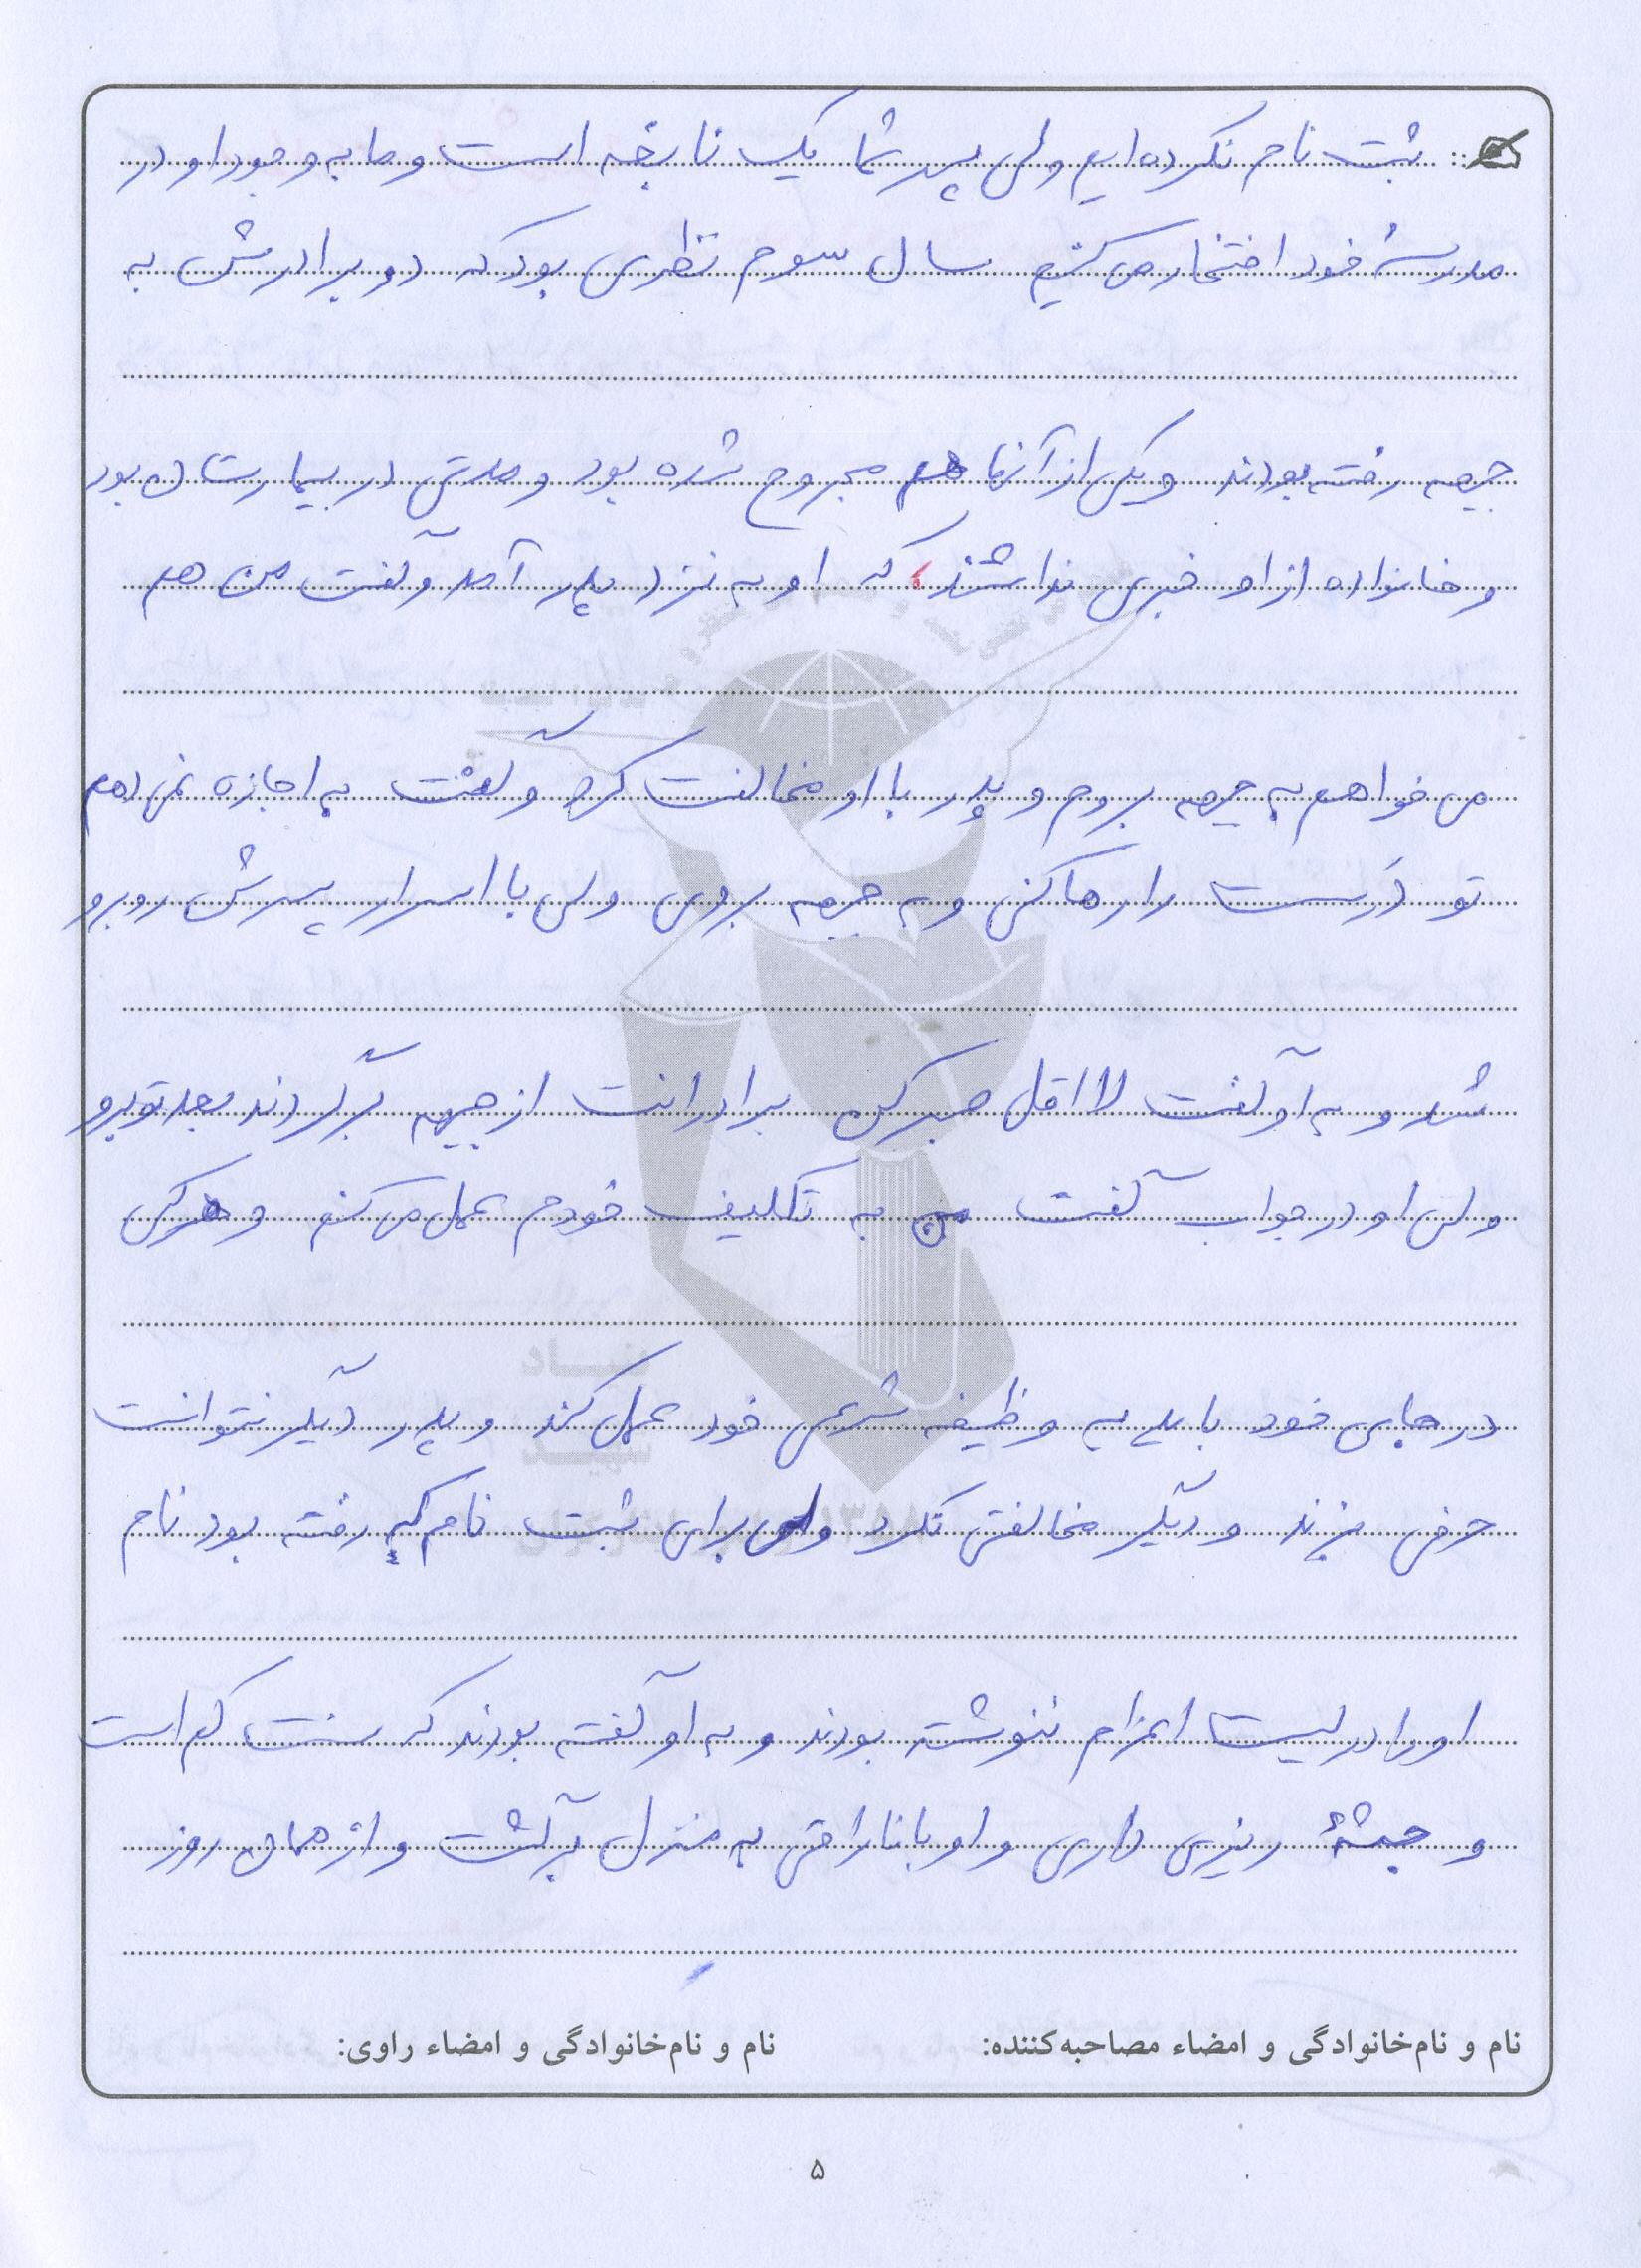 ثبت نام نکرده ایم ولی پسر شما یک نابغه است و ما به وجود او در
مدرسهٔ خود افتخار می کنیم سال سوم نظری بود که دو برادرش به
جبهه رفته بودند و یکی از آنها هم مجروح شده بود و مدتی در بیمارستان بود
و خانواده از او خبری نداشتند، که او به نزد پدر آمد و گفت من هم
می خواهم به جبهه بروم و پدر با او مخالفت کرد و گفت به اجازه نمی دهم
تو دَرست را رها کنی و به جبهه بروی ولی با اسرار پسرش روبرو
شد و به او گفت لااقل صبر کن برادرانت از جبهه برگردند بعد تو برو
ولی او در جواب گفت من به تکلیف خودم عمل می کنم و هر کس
در جای خود باید به وظیفه شرعی خود عمل کند و پدر دیگر نتوانست
حرفی بزند و دیگر مخالفتی نکرد ولی برای ثبت نام که رفته بود نام
او را در لیست اعزام ننوشته بودند و به او گفته بودند که سنت کم است
و جثهٔ ریزی داری و او با ناراحتی به منزل برگشت و از همان روز
نام و نام‌خانوادگی و امضاء مصاحبه‌کننده: نام و نام‌خانوادگی و امضاء راوی:
۵